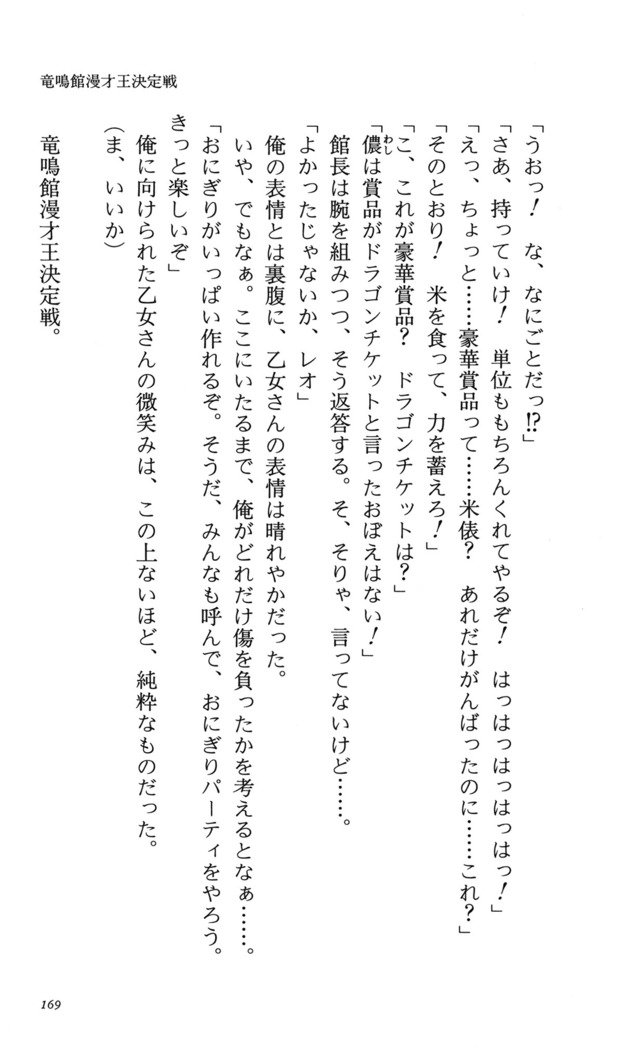 竜鳴館漫才王決定戦
「うおっ！　な、なにごとだっ!?」
「さあ、持っていけ！　単位ももちろんくれてやるぞ！　はっはっはっはっはっ！」
「えっ、ちょっと……豪華賞品って……米俵？　あれだけがんばったのに……これ？」
「そのとおり！　米を食って、力を蓄えろ！」
「こ、これが豪華賞品？　ドラゴンチケットは？」
「儂わしは賞品がドラゴンチケットと言ったおぼえはない！」
　館長は腕を組みつつ、そう返答する。そ、そりゃ、言ってないけど……。
「よかったじゃないか、レオ」
　俺の表情とは裏腹に、乙女さんの表情は晴れやかだった。
　いや、でもなぁ。ここにいたるまで、俺がどれだけ傷を負ったかを考えるとなぁ……。
「おにぎりがいっぱい作れるぞ。そうだ、みんなも呼んで、おにぎりパーティをやろう。
きっと楽しいぞ」
　俺に向けられた乙女さんの微笑みは、この上ないほど、純粋なものだった。
（ま、いいか）
　竜鳴館漫才王決定戦。
169